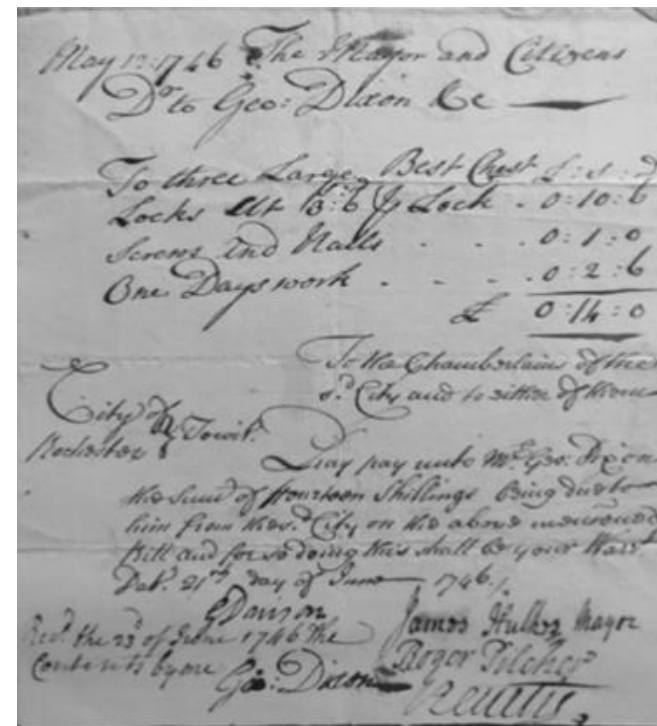 May 12: 1746 The Mayor and Citizens
Dr. to Geo: Dixon &c
To three Large Best Chest £ : s : d
Locks att 3:6 Lock . 0:10:6
Screws and Nails . . . 0:1:0
One Days work . . . . 0:2:6
£ 0:14:0
To the Chamberlains of the
sd. City and to either of them
City of
Rochester Towit.
Pray pay unto Mr. Geo: Dixon
the Sum of fourteen Shillings Being due to
him from the sd. City on the above mencioned
Bill and for so doing this shall be your Warrt.
Dat. 21st day of June 1746
Recd. the 23d of June 1746 the
Contents by me
Geo: Dixon
James Hulkes Mayor
Roger Pilcher